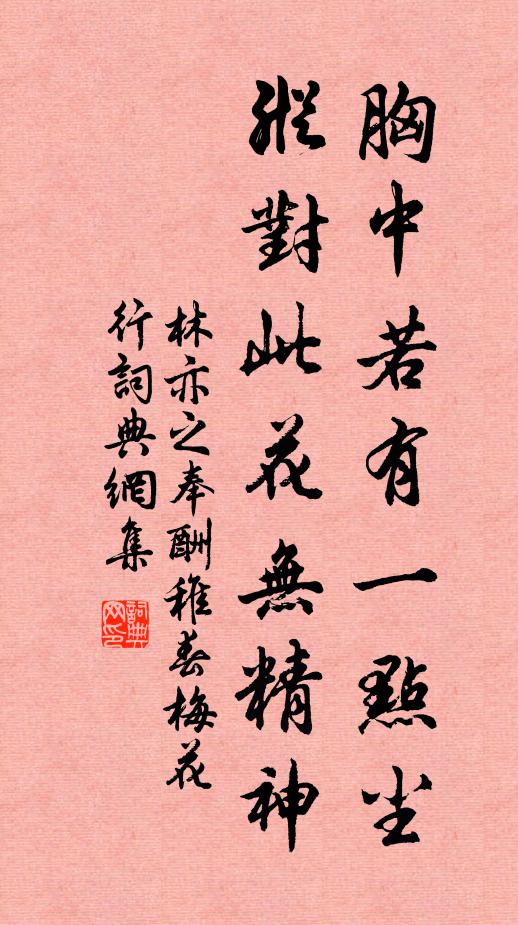 胸中若有一點尘
縱對此花無精神
林亦之奉酬稚春梅花
行詞典網集
詞典网印